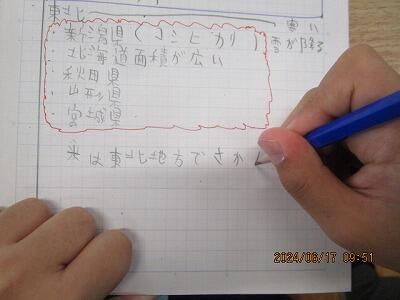 東北
寒い
雪が降る
新潟県(コシヒカリ)
北海道面積が広い
秋田県
山形県
宮城県
米は東北地方でさか
2024/06/17 09:51